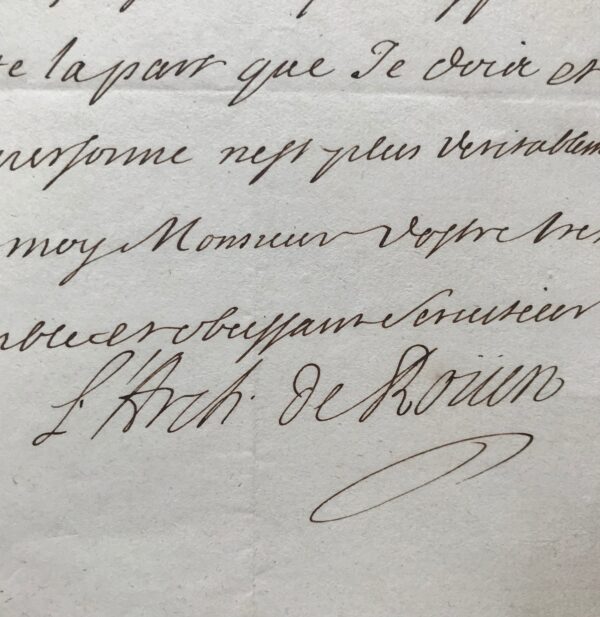 te la part que Je doix et
personne nest plus veritablem
moy Monsieur Vostre tres
mble et obeissant Serviteur
L'Arch. de Roüen